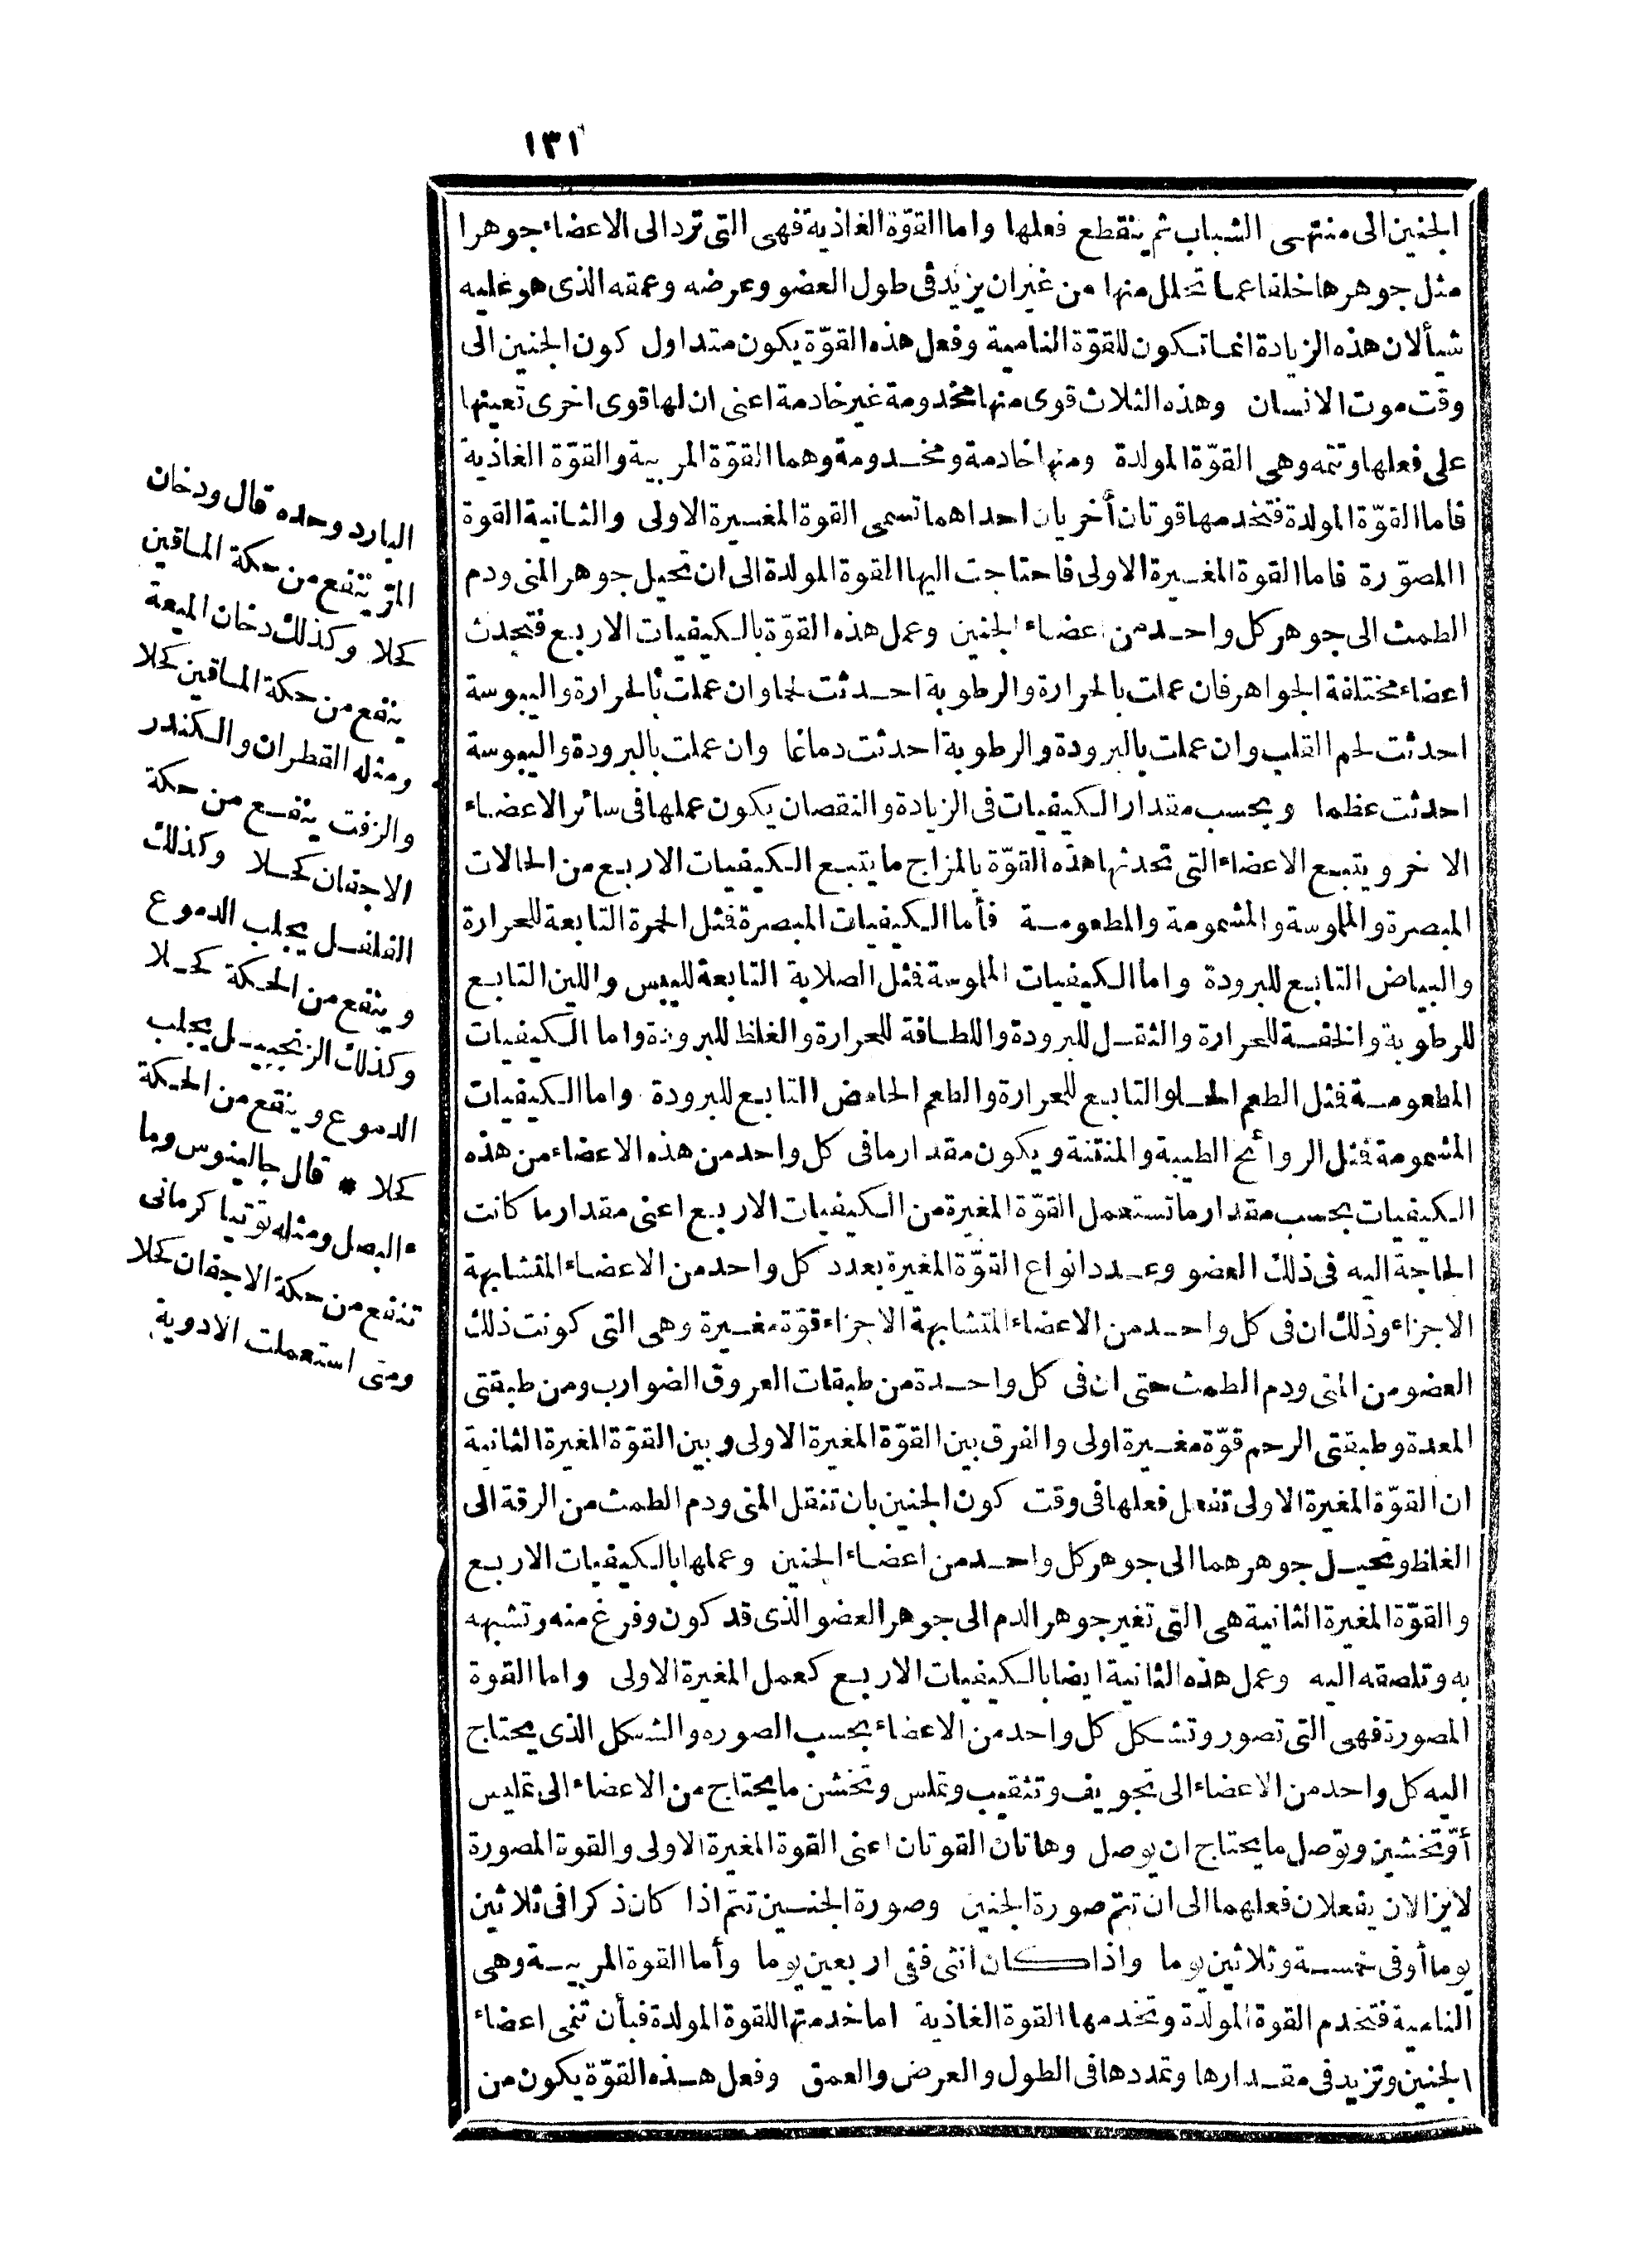 ١٣١
الجنين الى منتهى الشباب ثم ينقطع فعلها واما القوّة الغاذية فهى التى ترد الى الاعضاء جوهرا
مثل جوهرها خلفا عما تحلل منها من غيران يزيد فى طول العضو وعرضه وعمقه الذى هو عليه
شيأ لان هذه الزيادة انما تكون للقوّة النامية وفعل هذه القوّة يكون منذ اول كون الجنين الى
وقت موت الانسان وهذه الثلاث قوى منها مخدومة غير خادمة اعنى ان لها قوى اخرى تعينها
على فعلها وتتمه وهى القوّة المولدة ومنها خادمة ومخدومة وهما القوّة المربية والقوّة الغاذية
فاما القوّة المولدة فتخدمها قوتان أخريان احداهما تسمى القوة المغيرة الاولى والثانية القوة
المصوّرة فاما القوة المغيرة الاولى فاحتاجت اليها القوة المولدة الى ان تحيل جوهر المنى ودم
الطمث الى جوهر كل واحد من اعضاء الجنين وعمل هذه القوّة بالكيفيات الاربع فتحدث
اعضاء مختلفة الجواهر فان عملت بالحرارة والرطوبة احدثت لحما وان عملت بالحرارة واليبوسة
احدثت لحم القلب وان عملت بالبرودة والرطوبة احدثت دماغا وان عملت بالبرودة واليبوسة
احدثت عظما وبحسب مقدار الكيفيات فى الزيادة والنقصان يكون عملها فى سائر الاعضاء
الاخر ويتبع الاعضاء التى تحدثها هذه القوّة بالمزاج ما يتبع الكيفيات الاربع من الحالات
المبصرة والملموسة والمشمومة والمطعومة فأما الكيفيات المبصرة فمثل الحمرة التابعة للحرارة
والبياض التابع للبرودة واما الكيفيات الملموسة فمثل الصلابة التابعة لليبس واللين التابع
للرطوبة والخفة للحرارة والثقل للبرودة واللطافة للحرارة والغلظ للبرودة واما الكيفيات
المطعومة فمثل الطعم الحلو التابع للحرارة والطعم الحامض التابع للبرودة واما الكيفيات
المشمومة فمثل الروائح الطيبة والمنتنة ويكون مقدار ما فى كل واحد من هذه الاعضاء من هذه
الكيفيات بحسب مقدار ما تستعمل القوّة المغيرة من الكيفيات الاربع اعنى مقدار ما كانت
الحاجة اليه فى ذلك العضو وعدد انواع القوّة المغيرة بعدد كل واحد من الاعضاء المتشابهة
الاجزاء وذلك ان فى كل واحد من الاعضاء المتشابهة الاجزاء قوّة مغيرة وهى التى كونت ذلك
العضو من المنى ودم الطمث حتى ان فى كل واحدة من طبقات العروق الضوارب ومن طبقتى
المعدة وطبقتى الرحم قوّة مغيرة اولى والفرق بين القوّة المغيرة الاولى وبين القوّة المغيرة الثانية
ان القوّة المغيرة الاولى تفعل فعلها فى وقت كون الجنين بان تنقل المنى ودم الطمث من الرقة الى
الغلظ وتحيل جوهرهما الى جوهر كل واحد من اعضاء الجنين وعملها بالكيفيات الاربع
والقوّة المغيرة الثانية هى التى تغير جوهر الدم الى جوهر العضو الذى قد كون وفرغ منه وتشبهه
به وتلصقه اليه وعمل هذه الثانية ايضا بالكيفيات الاربع كعمل المغيرة الاولى واما القوة
المصورة فهى التى تصور وتشكل كل واحد من الاعضاء بحسب الصوره والشكل الذى يحتاج
اليه كل واحد من الاعضاء الى تجويف وتثقيب وتملس وتخشن ما يحتاج من الاعضاء الى تمليس
أوّتخشين وتوّصل ما يحتاج ان يوصل وهاتان القوتان اعنى القوة المغيرة الاولى والقوة المصورة
لا يزالان يفعلان فعلهما الى ان تتم صورة الجنين وصورة الجنسين تتم اذا كان ذكرا فى ثلاثين
يوما أو فى خمسة وثلاثين يوما واذا كان انثى ففى اربعين يوما وأما القوة المربية وهى
النامية فتخدم القوة المولدة وتخدمها القوة الغاذية اما خدمتها للقوة المولدة فبأن تنمى اعضاء
الجنين وتزيد فى مقدارها وتمددها فى الطول والعرض والعمق وفعل هذه القوّة يكون من
البارد وحده قال ودخان
المرّ ينفع من حكة الماقين
كحلا وكذلك دخان الميعة
ينفع من حكة الماقين كحلا
ومثله القطران والكندر
والزفت ينفع من حكة
الاجفان كحلا وكذلك
الفلفل يجلب الدموع
وينفع من الحكة كحلا
وكذلك الزنجبيل يجلب
الدموع وينفع من الحكة
كحلا * قال جالينوس وما
ء البصل ومثله توتيا كرمانى
تنفع من حكة الاجفان كحلا
ومتى استعملت الادوية